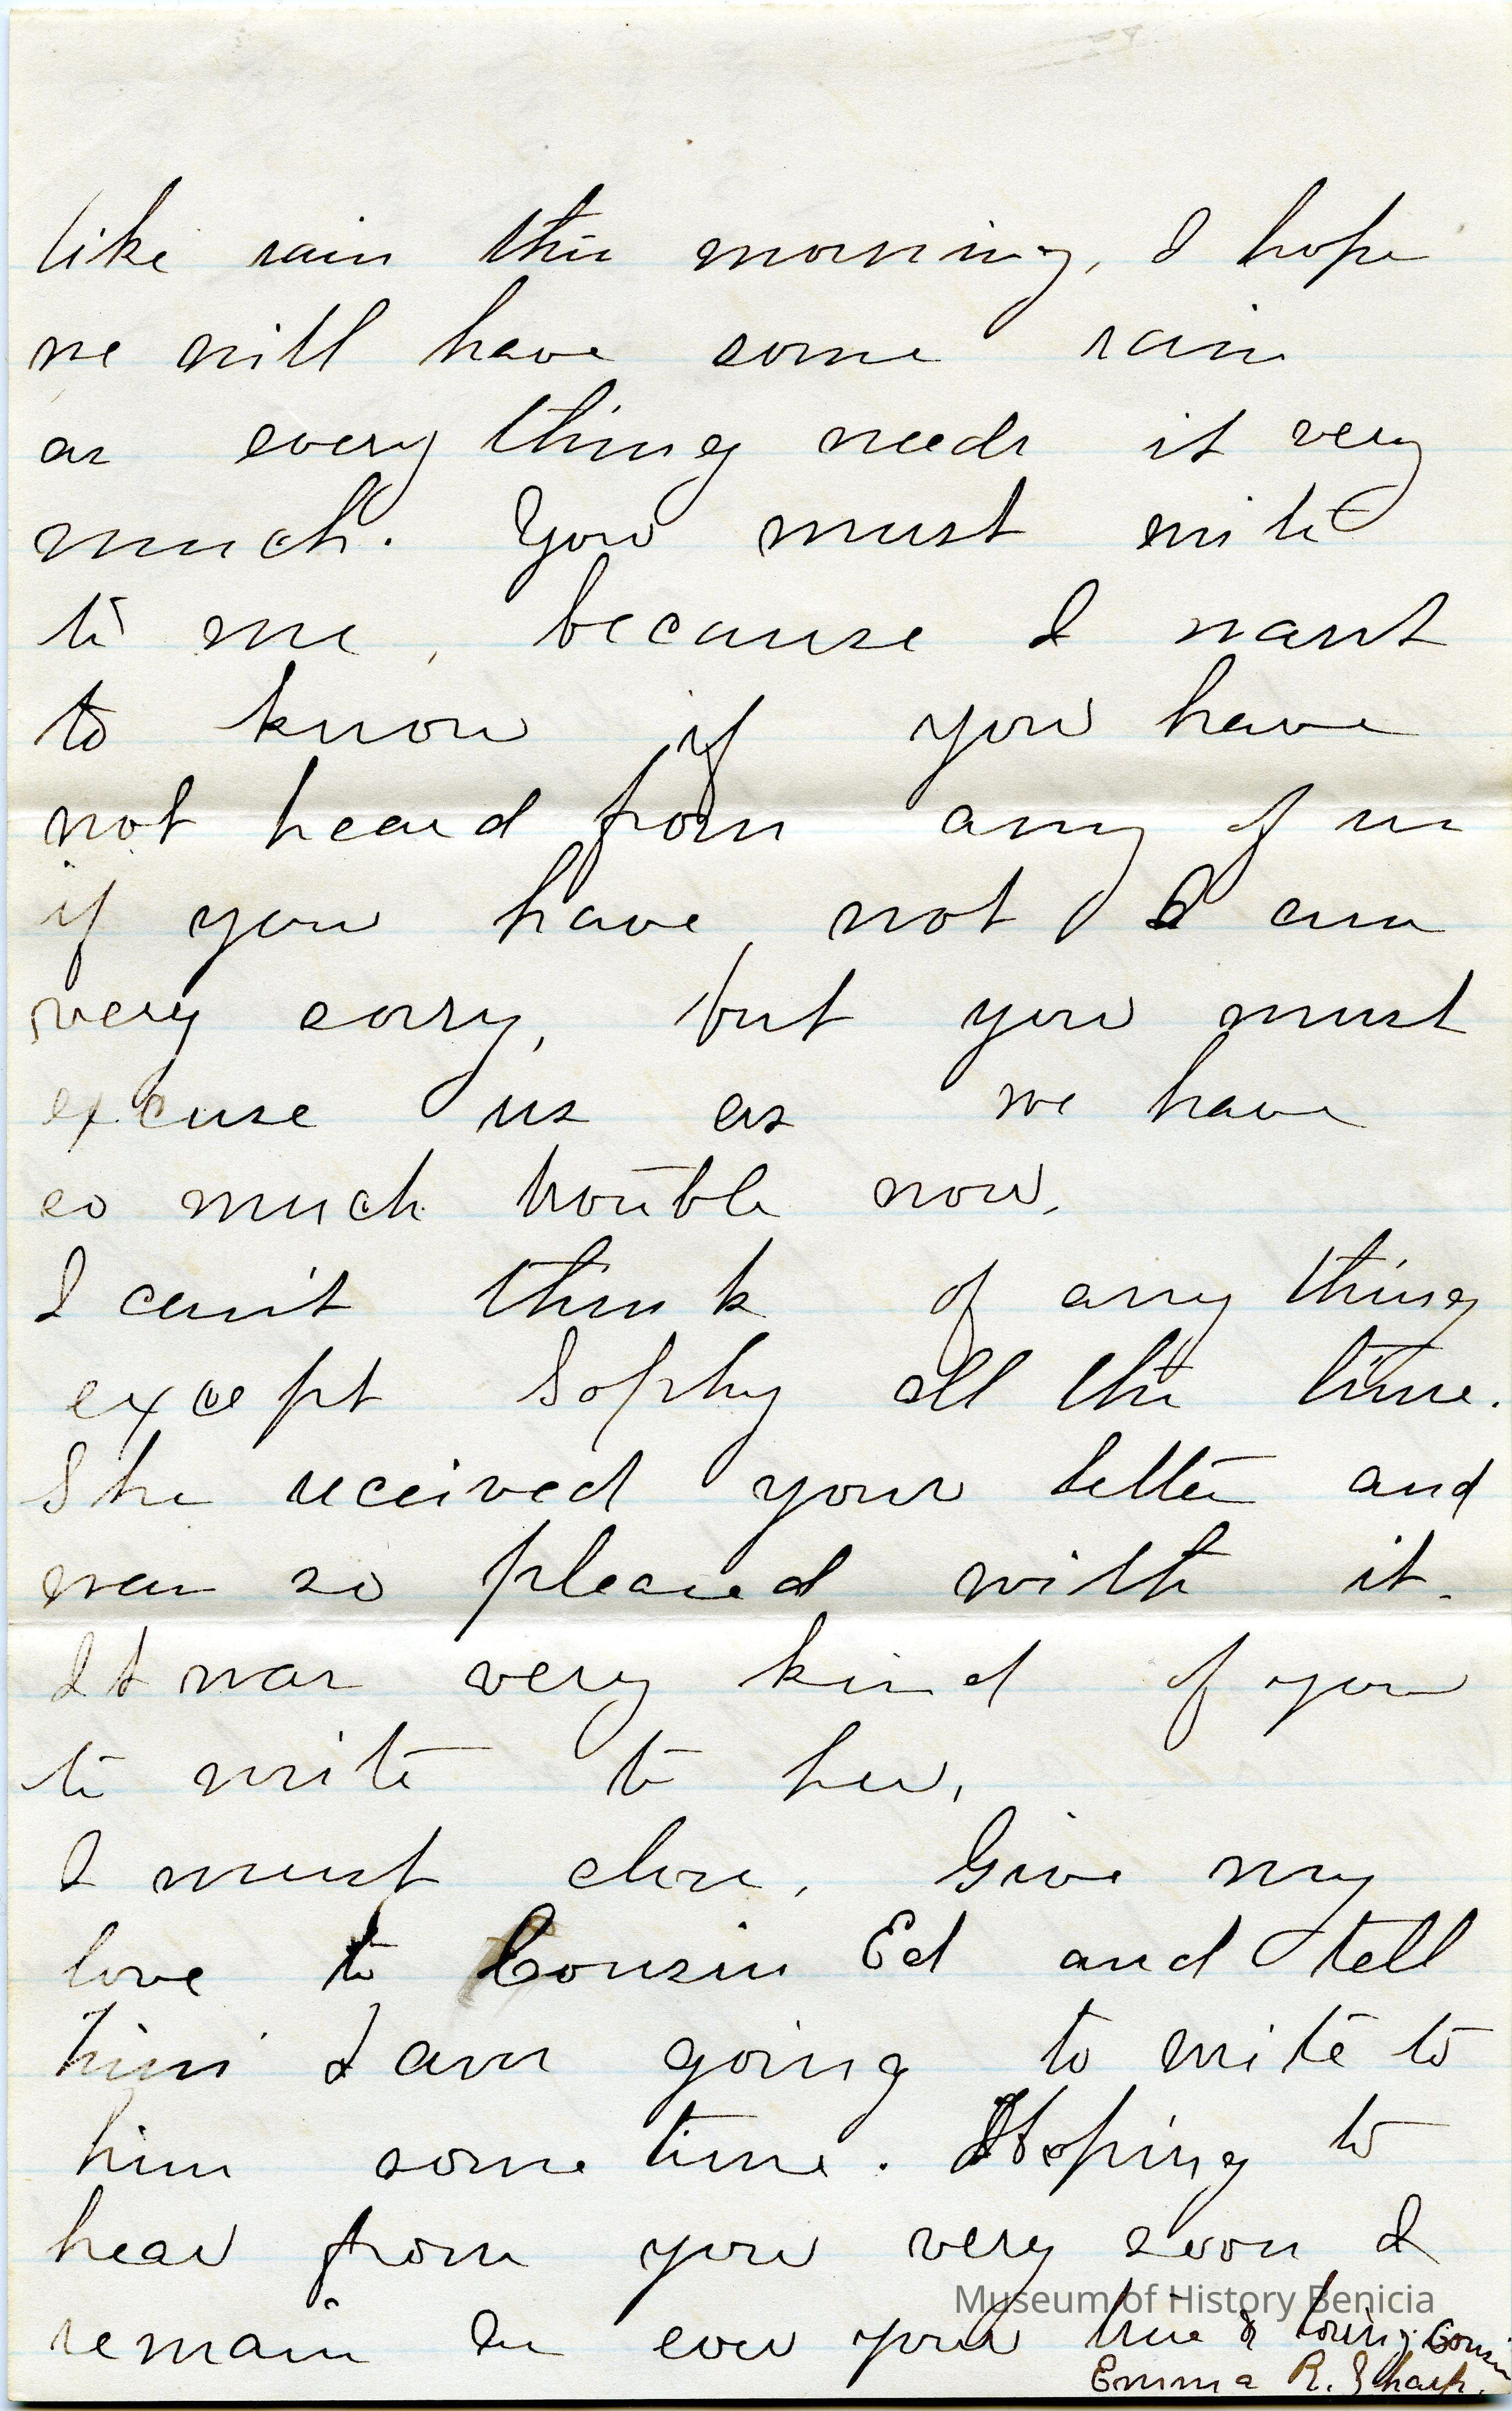 like rain this morning, I hope
we will have some rain
as every thing needs it very
much. You must write
to me, because I want
to know if you have
not heard from any of us
if you have, not I am
very sorry, but you must
excuse us as we have
so much trouble now,
I can't think of any thing
except Sophy all the time.
She received your letter and
was so pleased with it.
It was very kind of you
to write to her,
I must close, Give my
love to Cousin Ed and tell
him I am going to write to
him some time. Hoping to
hear from you very soon I
Museum of History Benicia
remain as ever your true & loving Cousin
Emma R. Sharp.